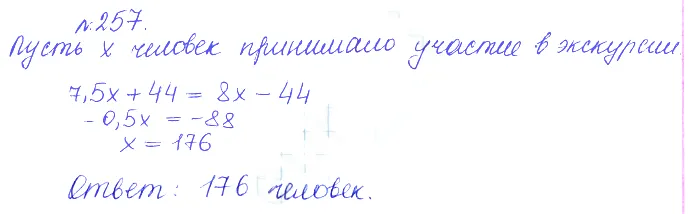 №257.
Пусть x человек принимало участие в экскурсии
7,5x + 44 = 8x - 44
- 0,5x = -88
x = 176
Ответ: 176 человек.